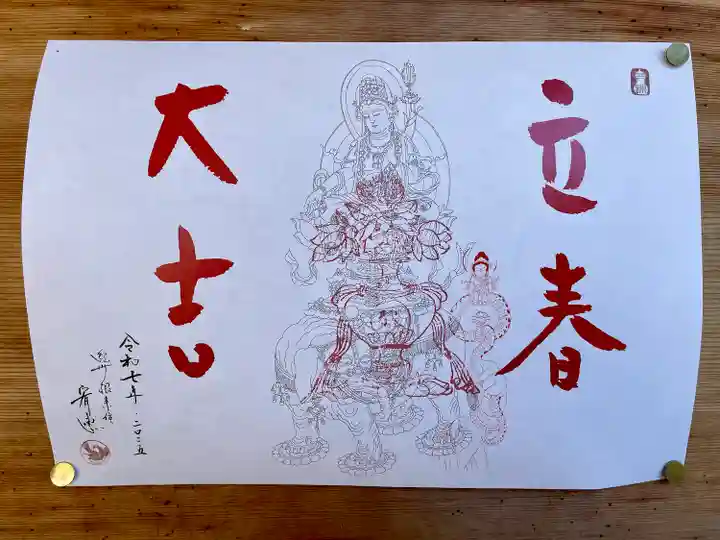 立春
大吉
令和七年・二〇二五